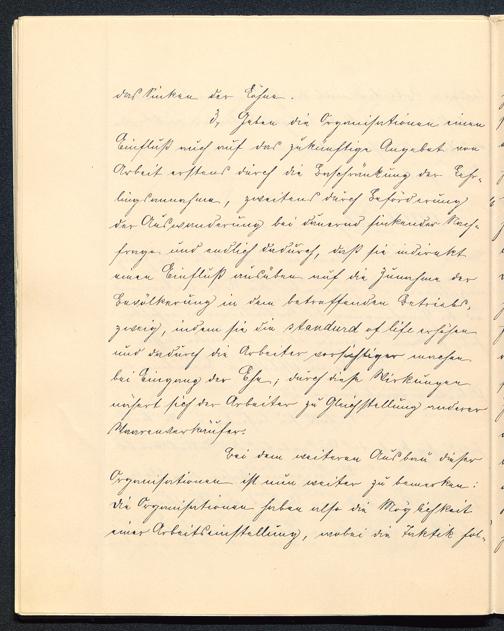 das Sinken der Löhne.
3, Haben die Organisationen einen
Einfluß auch auf das zukünftige Angebot von
Arbeit erstens durch die Beschränkung der Lehr-
lingsannahme, zweitens durch Beförderung
der Auswanderung bei dauernd sinkender Nach-
frage und endlich dadurch, daß sie indirekt
einen Einfluß ausüben auf die Zunahme der
Bevölkerung in dem betreffenden Betriebs-
zweig, indem sie die standard of life erhöhen
und dadurch die Arbeiter vorsichtiger machen
bei Eingang der Ehe; durch diese Wirkungen
nähert sich der Arbeiter zu Gleichstellung anderer
Waarenverkäufer.
Bei dem weiteren Ausbau dieser
Organisationen ist nun weiter zu bemerken:
die Organisationen haben also die Möglichkeit
einer Arbeitseinstellung, wobei die Taktik fol-